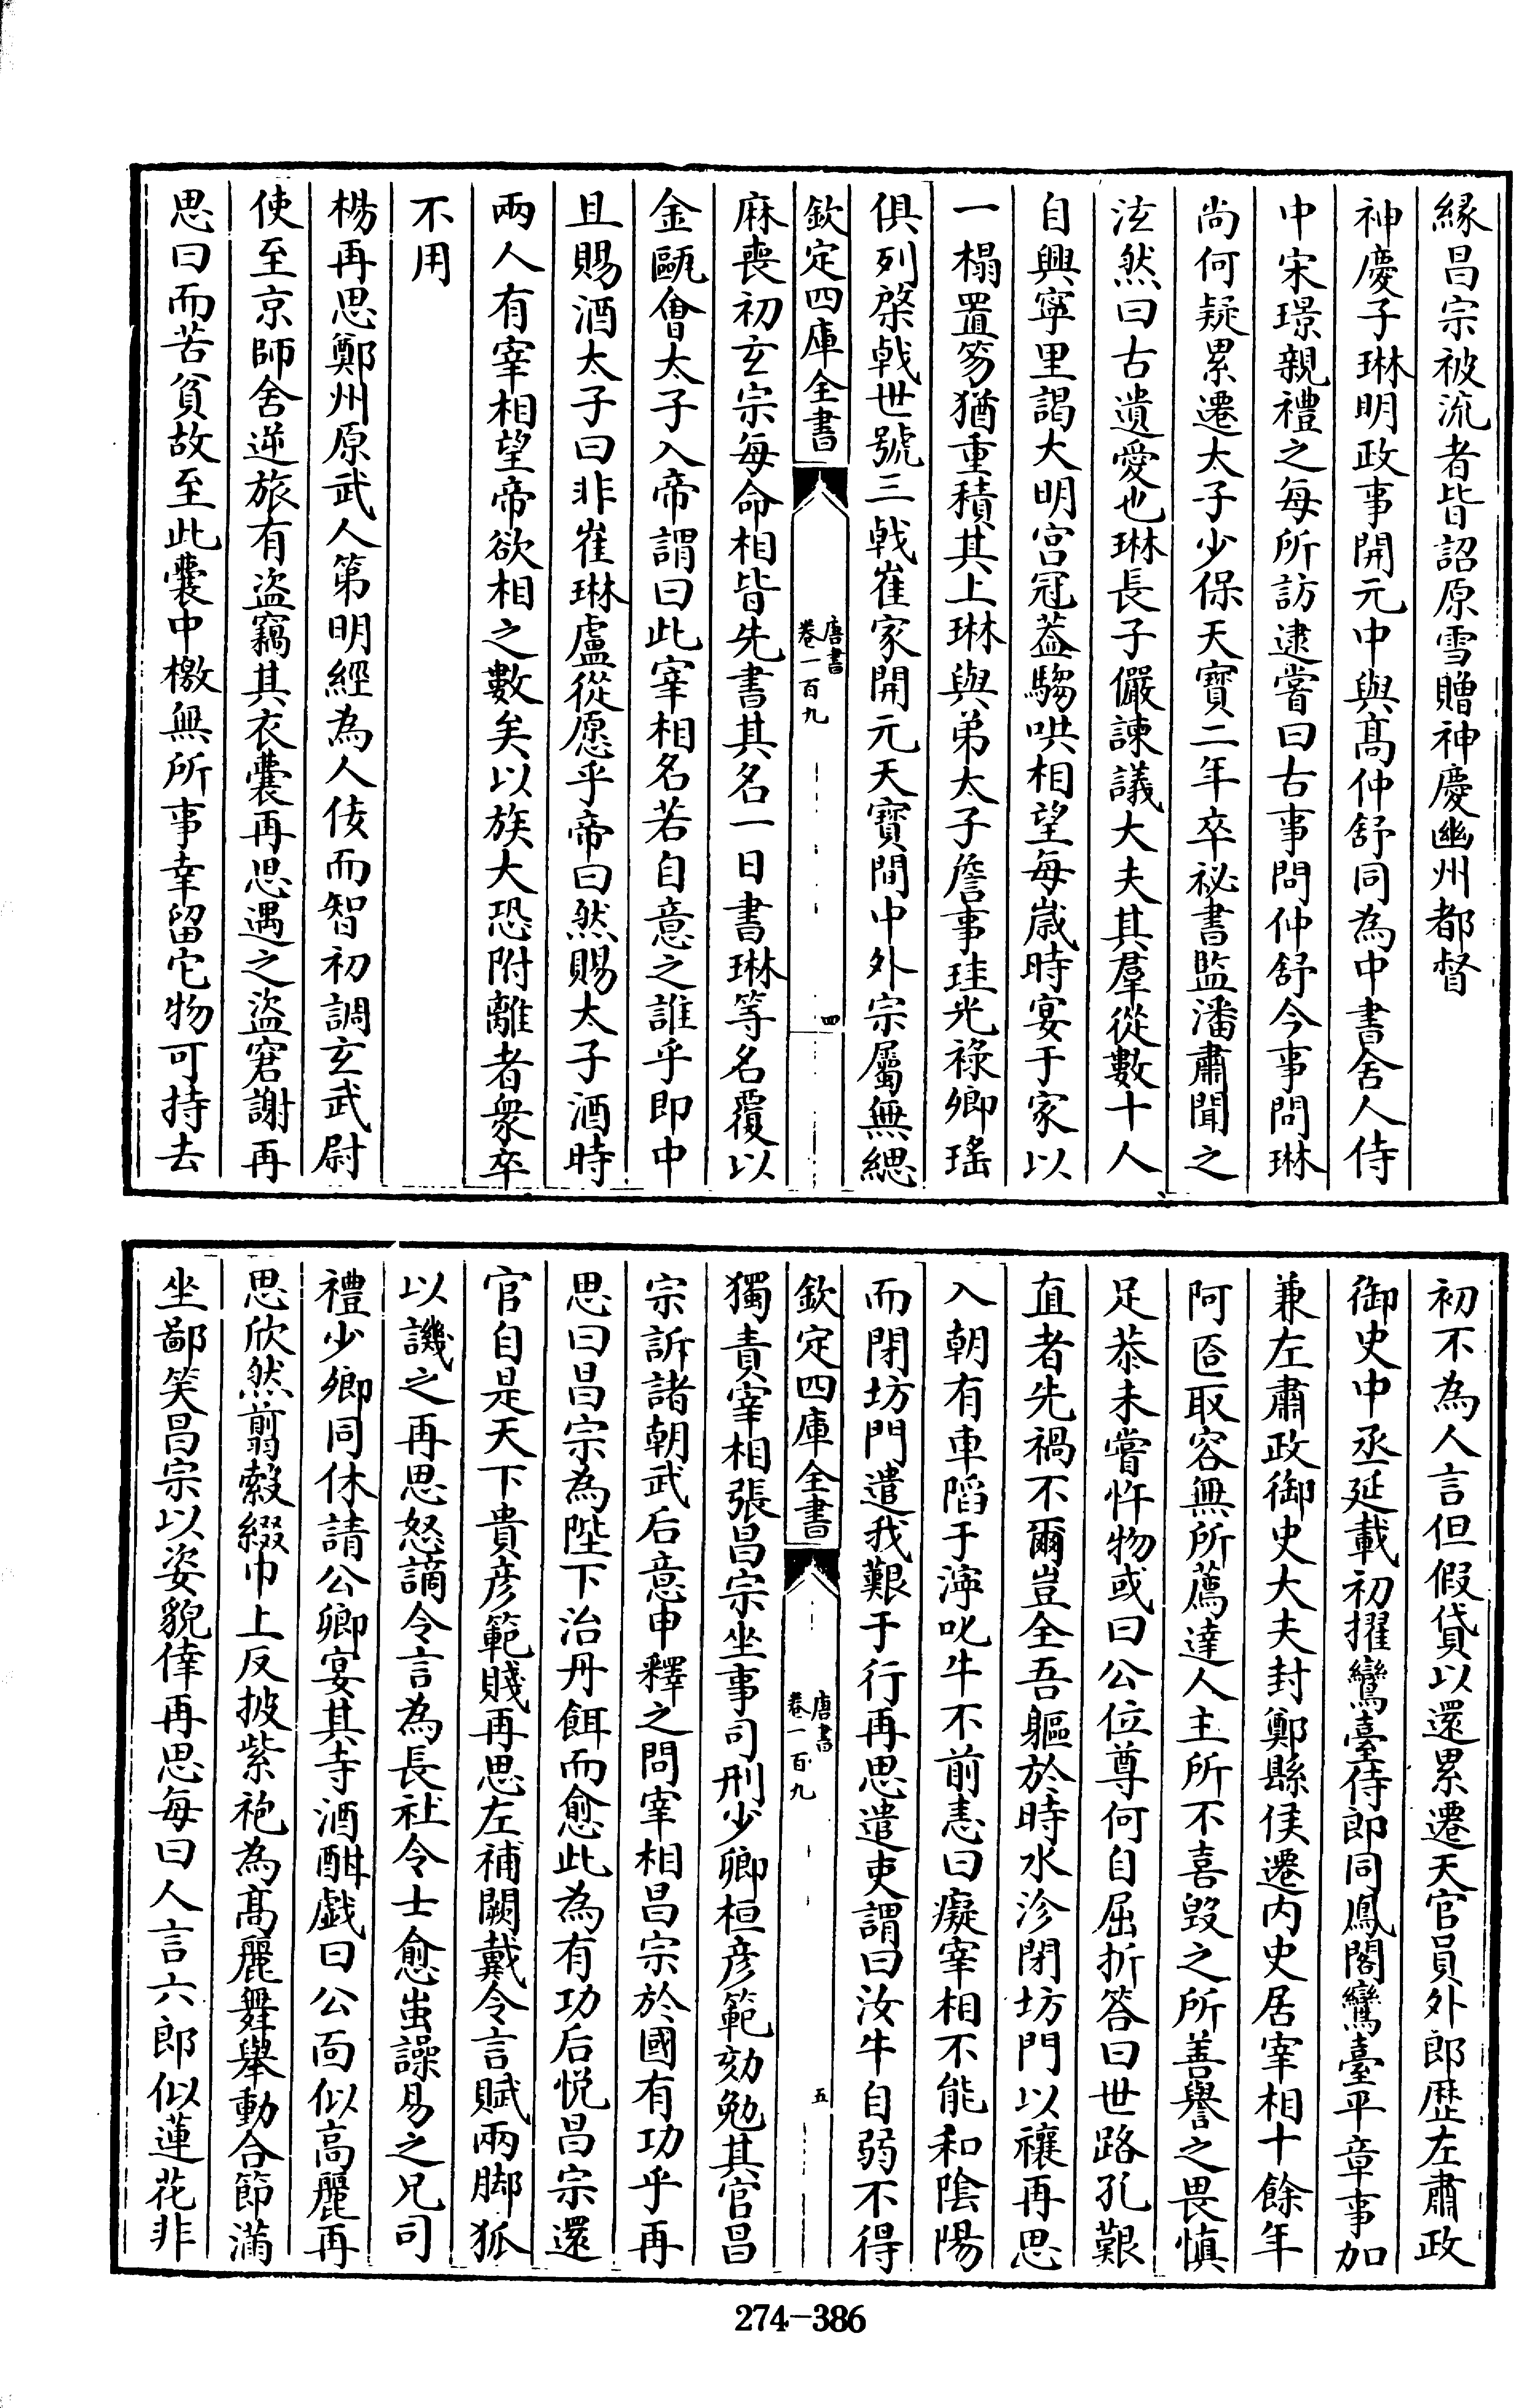 縁昌宗被流者皆詔原雪贈神慶幽州都督
神慶子琳明政事開元中與髙仲舒同為中書舍人侍
中宋璟親禮之每所訪逮嘗曰古事問仲舒今事問琳
尚何疑累遷太子少保天寳二年卒祕書監潘肅聞之
泫然曰古遺愛也琳長子儼諫議大夫其羣從數十人
自興寧里謁大明宫冠葢騶哄相望每嵗時宴于家以
一榻置笏猶重積其上琳與弟太子詹事珪光祿卿瑤
俱列棨戟世號三戟崔家開元天寳間中外宗屬無緦
欽定四庫全書
唐書
卷一百九
四
麻喪初玄宗每命相皆先書其名一日書琳等名覆以
金甌會太子入帝謂曰此宰相名若自意之誰乎即中
且賜酒太子曰非崔琳盧從愿乎帝曰然賜太子酒時
兩人有宰相望帝欲相之數矣以族大恐附離者衆卒
不用
楊再思鄭州原武人第明經為人佞而智初調玄武尉
使至京師舍逆旅有盜竊其衣囊再思遇之盜窘謝再
思曰而苦貧故至此囊中檄無所事幸留它物可持去
初不為人言但假貸以還累遷天官員外郎歴左肅政
御史中丞延載初擢鸞臺侍郎同鳳閣鸞臺平章事加
兼左肅政御史大夫封鄭縣侯遷内史居宰相十餘年
阿匼取容無所薦達人主所不喜毀之所善譽之畏愼
足恭未嘗忤物或曰公位尊何自屈折答曰世路孔艱
直者先禍不爾豈全吾軀於時水沴閉坊門以禳再思
入朝有車陷于濘叱牛不前恚曰癡宰相不能和陰陽
而閉坊門遣我艱于行再思遣吏謂曰汝牛自弱不得
欽定四庫全書
唐書
卷一百九
五
獨責宰相張昌宗坐事司刑少卿桓彦範劾勉其官昌
宗訴諸朝武后意申釋之問宰相昌宗於國有功乎再
思曰昌宗為陛下治丹餌而愈此為有功后悦昌宗還
官自是天下貴彦範賤再思左補闕戴令言賦兩脚狐
以譏之再思怒謫令言為長社令士愈蚩譟易之兄司
禮少卿同休請公卿宴其寺酒酣戯曰公面似高麗再
思欣然翦縠綴巾上反披紫袍為髙麗舞舉動合節滿
坐鄙笑昌宗以姿貌倖再思每曰人言六郎似蓮花非
274-386